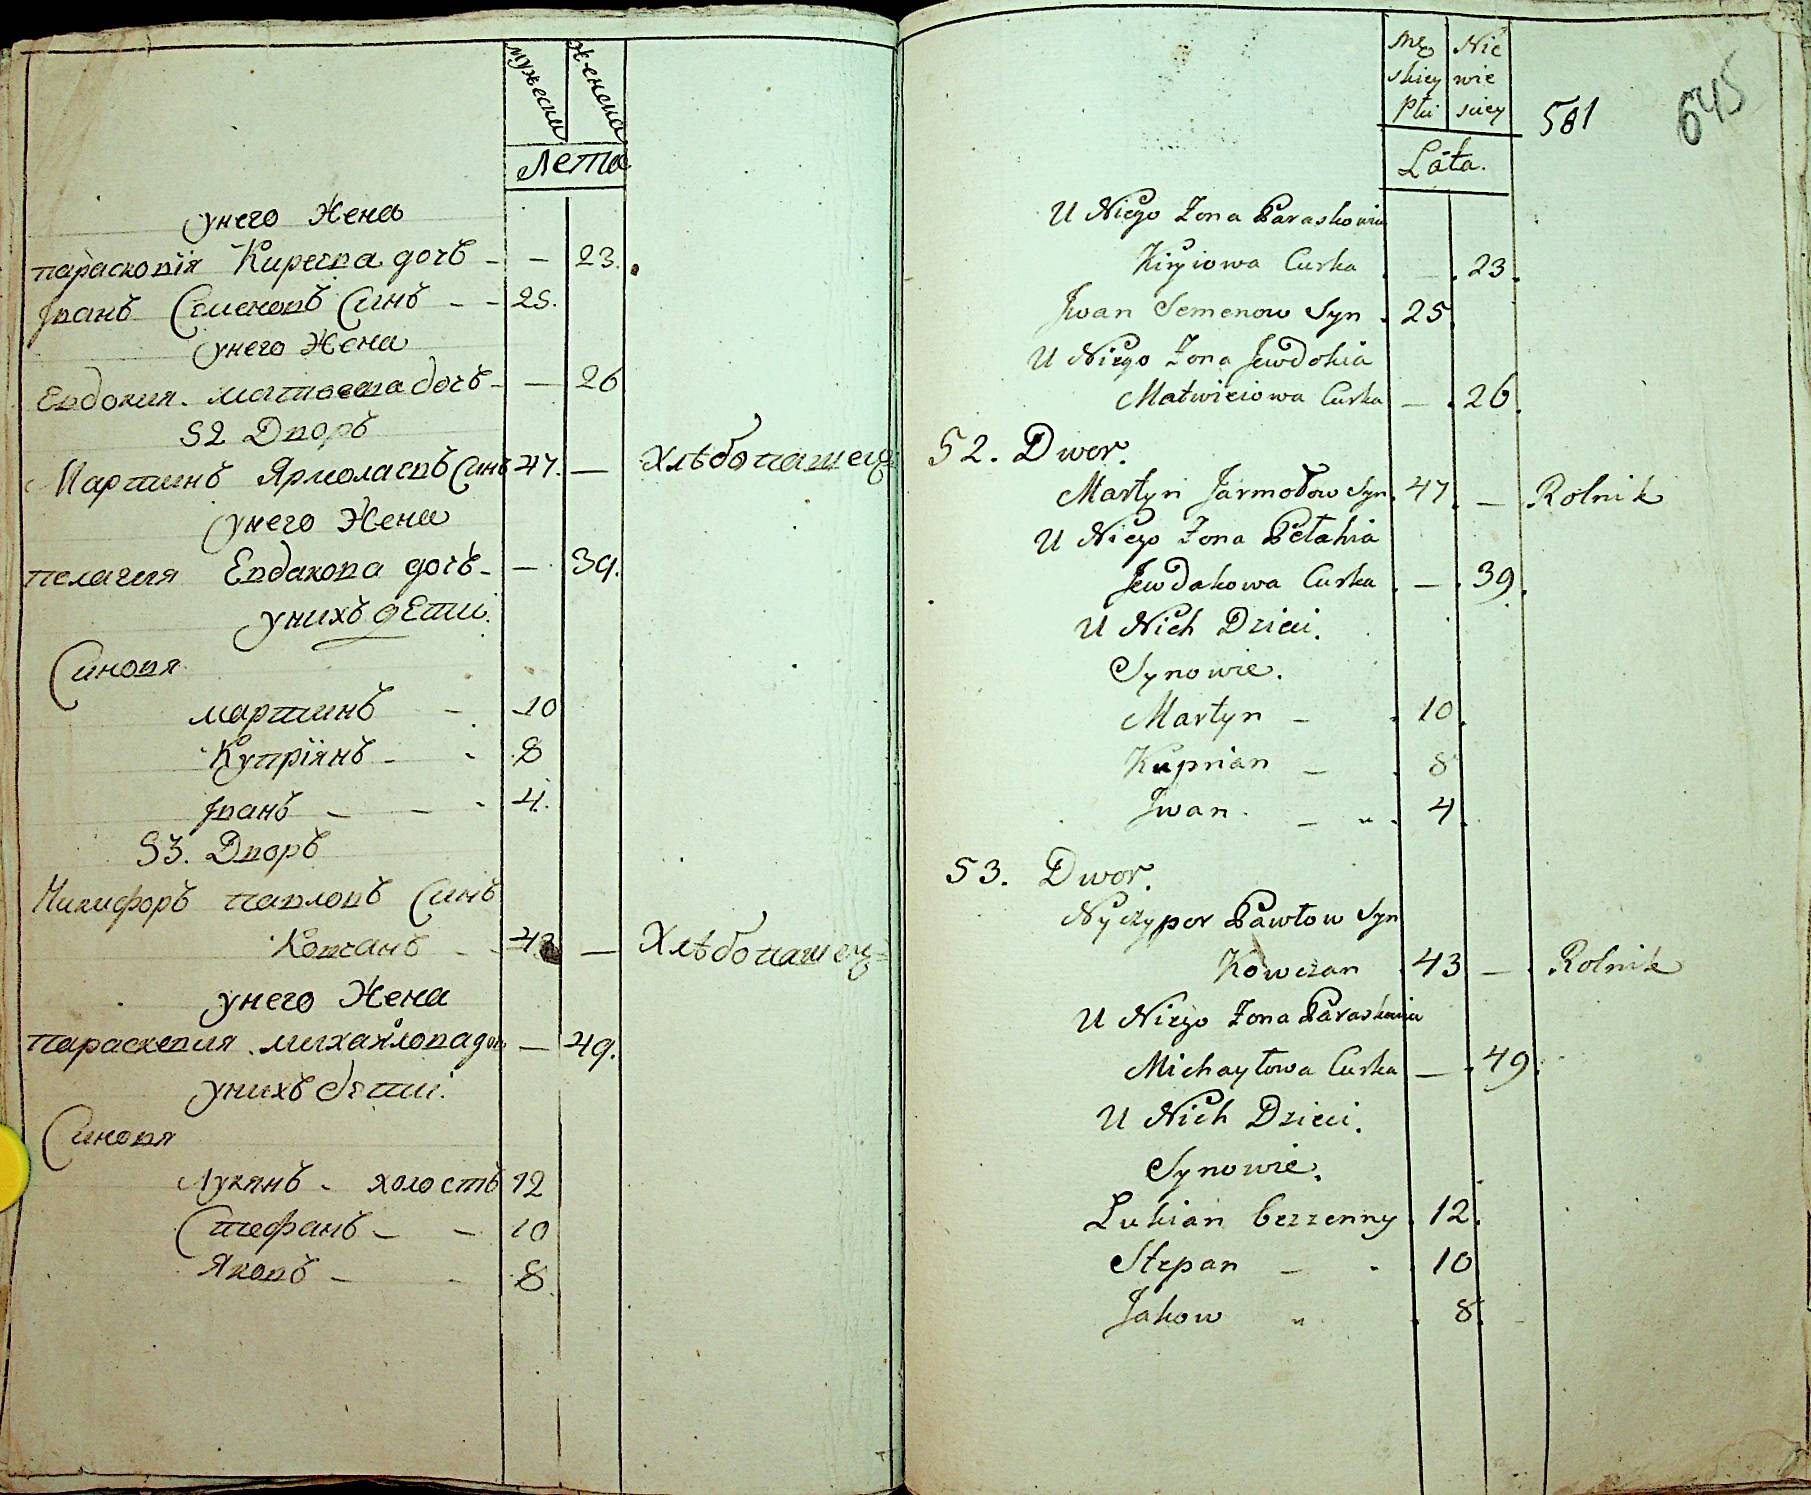 мужеска женска
Лета
унего Жена
параскопія Киреева дочь - - 23.
Іванъ Семеновъ Синъ - - 25.
унего Жена
Евдокия матвеева дочь - — 26
52 Дворъ
Мартинъ Ярмолаевъ Синъ 47. — Хлѣбопашец
унего Жена
пелагия Евдакова дочь - — 39.
унихъ дети.
Синовя
мартинъ - 10
Купріянъ - - 8
Іванъ - - - 4.
53. Дворъ
Никифоръ павловъ Синъ
Ковчанъ - - 43 — Хлѣбопашец
унего Жена
параскевия михайлова доч — 49.
унихъ дѣти.
Синовя
Лукянъ - холостъ 12
Стефанъ - - 10
Яковъ - - 8
Mę Nie
skiey wie
Płci sciey
581
645
Lata.
U Niego Zona Paraskowia
Kiryiowa Curka . — . 23.
Jwan Semenow Syn . 25
U Niego Zona Jewdokia
Matwieiowa Curka — . 26.
52. Dwor.
Martyn Jarmołow Syn . 47. — Rolnik
U Niego Zona Pełahia
Jewdakowa Curka . — . 39.
U Nich Dzieci.
Synowie.
Martyn - . 10.
Kuprian - . 8
Jwan . - „ . 4.
53. Dwor.
Nyczypor Pawłow Syn
Kowczan . 43 — . Rolnik
U Niego Zona Paraskewia
Michayłowa Curka — . 49.
U Nich Dzieci.
Synowie.
Lukian bezzenny . 12.
Stepan - - . 10
Jakow „ . 8.